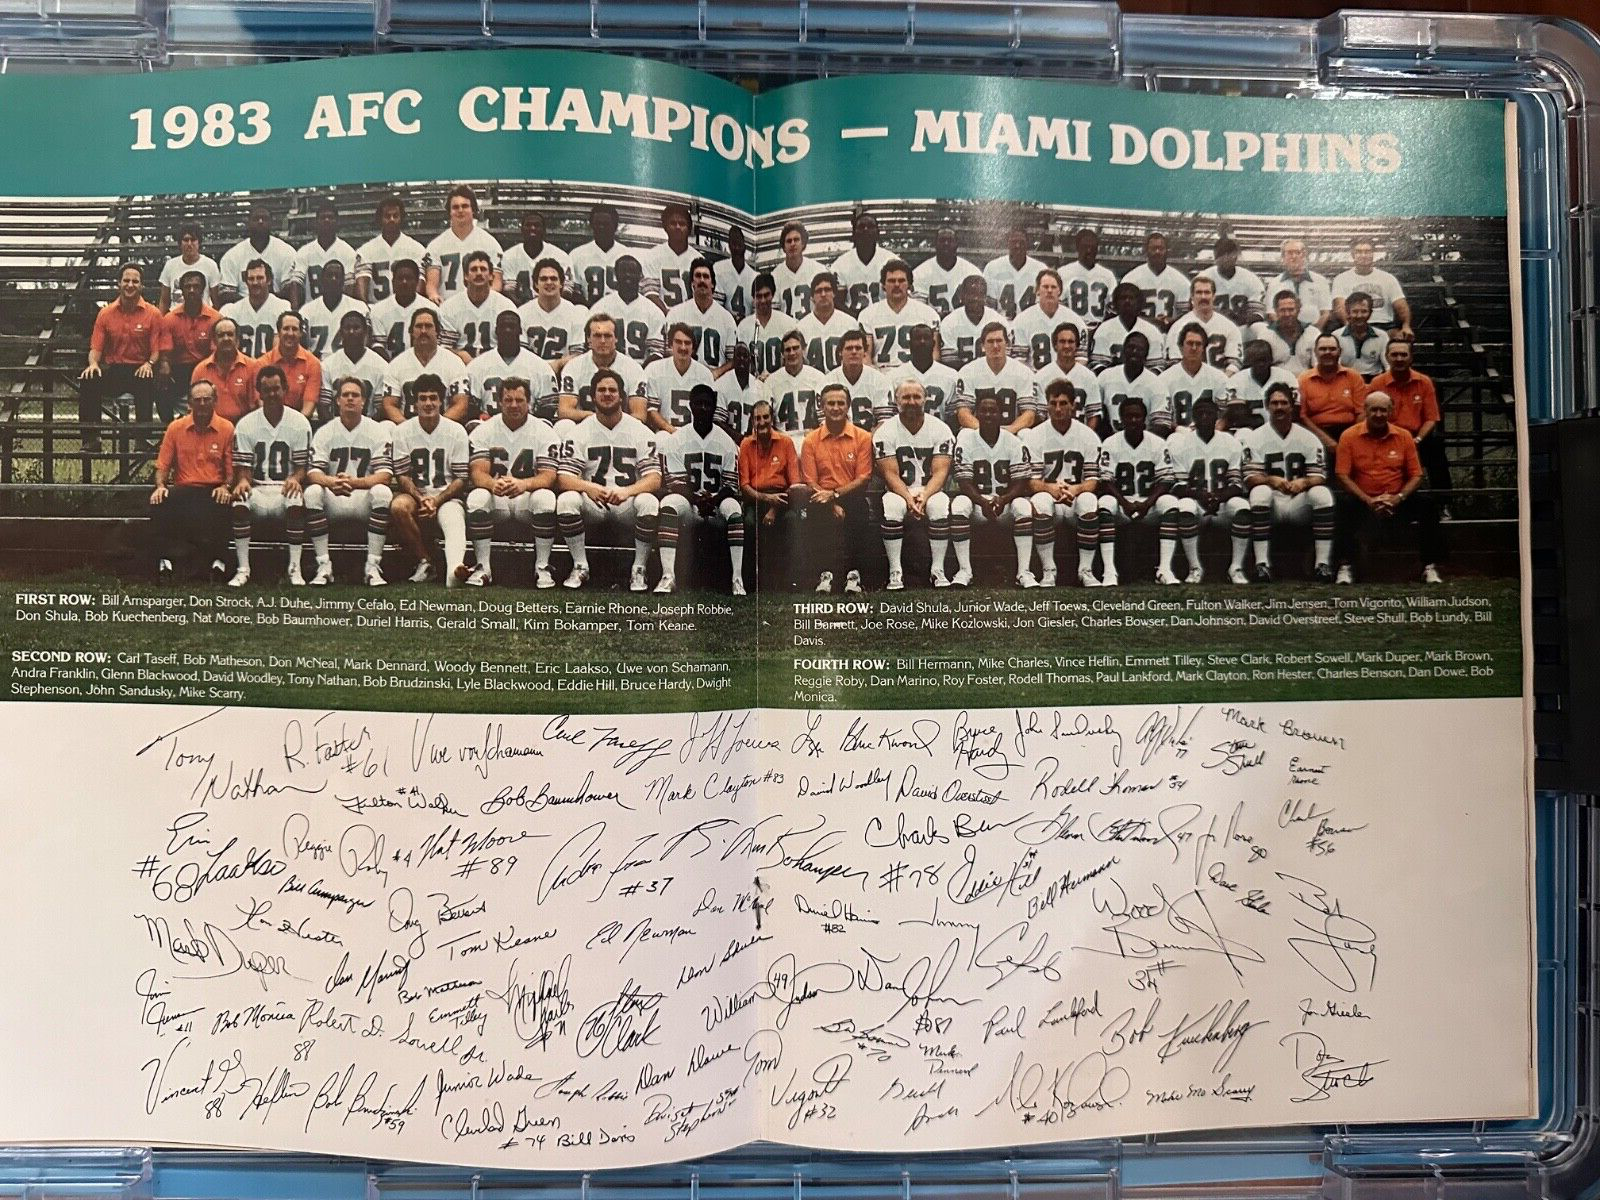 1983 AFC CHAMPIONS — MIAMI DOLPHINS
FIRST ROW: Bill Arnsparger, Don Strock, A.J. Duhe, Jimmy Cefalo, Ed Newman, Doug Betters, Earnie Rhone, Joseph Robbie,
Don Shula, Bob Kuechenberg, Nat Moore, Bob Baumhower, Duriel Harris, Gerald Small, Kim Bokamper, Tom Keane.
SECOND ROW: Carl Taseff, Bob Matheson, Don McNeal, Mark Dennard, Woody Bennett, Eric Laakso, Uwe von Schamann,
Andra Franklin, Glenn Blackwood, David Woodley, Tony Nathan, Bob Brudzinski, Lyle Blackwood, Eddie Hill, Bruce Hardy, Dwight
Stephenson, John Sandusky, Mike Scarry.
THIRD ROW: David Shula, Junior Wade, Jeff Toews, Cleveland Green, Fulton Walker, Jim Jensen, Tom Vigorito, William Judson,
Bill Barnett, Joe Rose, Mike Kozlowski, Jon Giesler, Charles Bowser, Dan Johnson, David Overstreet, Steve Shull, Bob Lundy, Bill
Davis.
FOURTH ROW: Bill Hermann, Mike Charles, Vince Heflin, Emmett Tilley, Steve Clark, Robert Sowell, Mark Duper, Mark Brown,
Reggie Roby, Dan Marino, Roy Foster, Rodell Thomas, Paul Lankford, Mark Clayton, Ron Hester, Charles Benson, Dan Dowe, Bob
Monica.
Tony Nathan
R. Foster #61
Uwe von Schamann
Carl Taseff
Jeff Toews
Bruce Hardy
John Sandusky
77
Mark Brown
Steve Shull
Fulton Walker #41
Bob Baumhower
Mark Clayton #83
David Woodley
David Overstreet
Rodell Thomas #54
Eric Laakso #68
Reggie Roby #4
Nat Moore #89
#37
Kim Bokamper
Charles Benson #78
47
80
#56
Bill Arnsparger
Doug Betters
Eddie Hill #31
Bill Hermann
Mark Duper
Ron Hester
Tom Keane
Ed Newman
Don McNeal
Duriel Harris #82
Jimmy
Woody Bennett #34
Dan Marino
Bob Matheson
Don Shula
Jim Jensen #11
Bob Monica
Robert D. Sowell Jr.
Emmett Tilley
Steve Clark 76
William Judson 49
Dan Johnson #87
Paul Lankford
Bob Kuechenberg
Jon Giesler
#70
Mark Dennard
Vincent G. Heflin 88
88
Bob Brudzinski #59
Junior Wade
Joseph Robbie
Dan Dowe
Tom Vigorito #32
#40
Mike Mo Scarry
Don Strock
Cleveland Green #74
Bill Davis
Dwight Stephenson